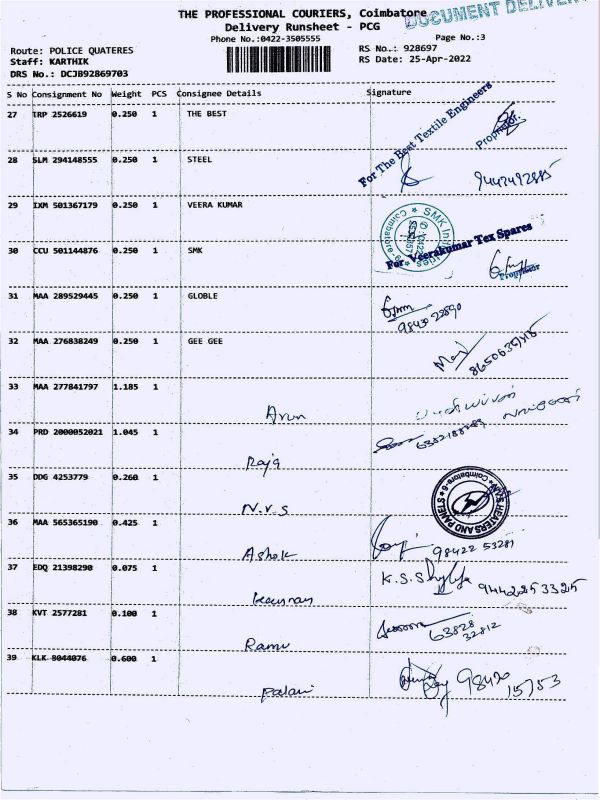 THE PROFESSIONAL COURIERS, Coimbatore
DOCUMENT DELIVERY
Delivery Runsheet - PCG
Phone No.:0422-3505555
Page No.:3
Route: POLICE QUATERES
RS No.: 928697
Staff: KARTHIK
RS Date: 25-Apr-2022
DRS No.: DCJB92869703
S No Consignment No Weight PCS Consignee Details Signature
27 TRP 2526619 0.250 1 THE BEST
For The Best Textile Engineers
Proprietor.
28 SLM 294148555 0.250 1 STEEL
29 IXM 501367179 0.250 1 VEERA KUMAR
SMK Industries
Coimbatore-9
For Veerakumar Tex Spares
Proprietor
30 CCU 501144876 0.250 1 SMK
31 MAA 289529445 0.250 1 GLOBLE
32 MAA 276838249 0.250 1 GEE GEE
33 MAA 277841797 1.185 1 Arun
34 PRD 2000052021 1.045 1 Raja
35 DDG 4253779 0.260 1 N.V.S
N.V.S HEATERS AND PANELS
Coimbatore-6
36 MAA 565365190 0.425 1 Ashok
98422 53281
37 EDQ 21398290 0.075 1
K.S.
9442253325
38 KVT 2577281 0.100 1 Ramu
63828
32812
39 KLK 8044076 0.600 1 Palani
98420
15753